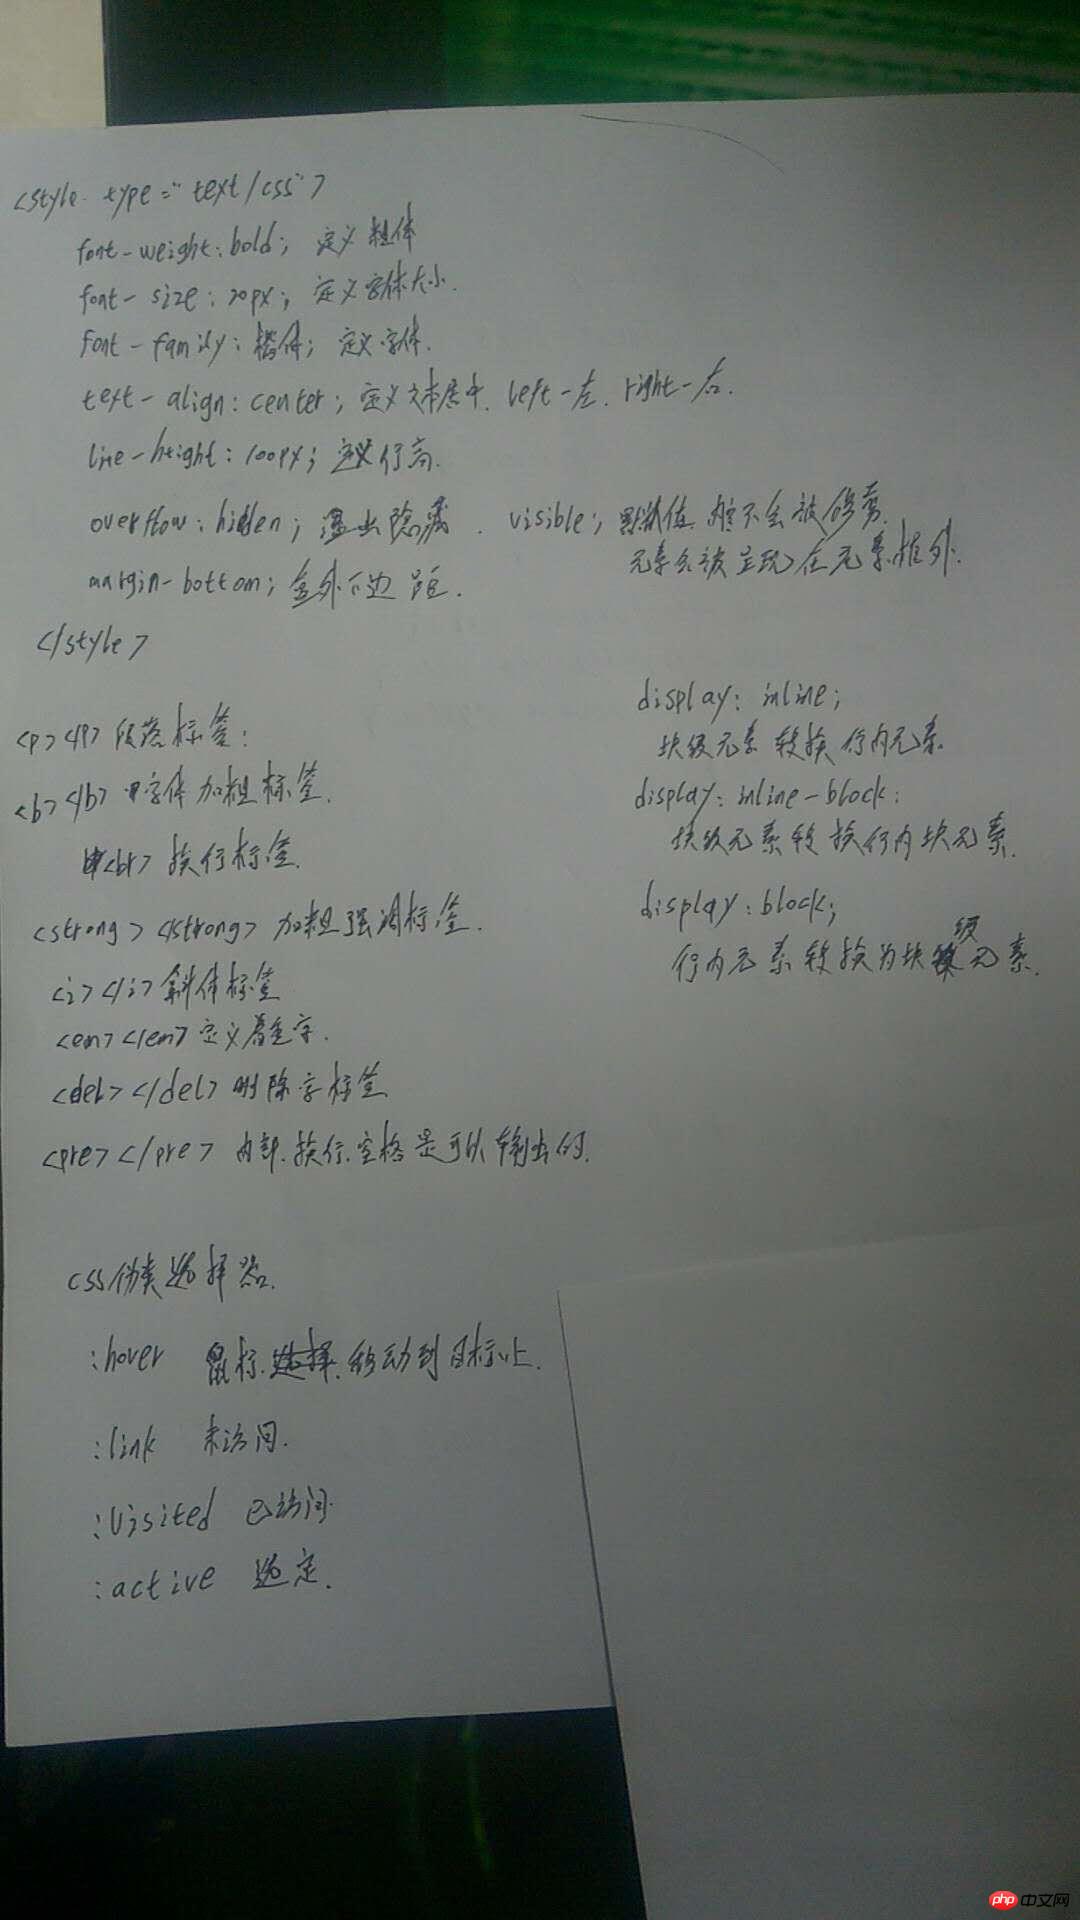 <style type="text/css">
font-weight:bold; 定义粗体
font-size:20px; 定义字体大小.
font-family:楷体; 定义字体.
text-align:center; 定义文本居中. left-左. right-右.
line-height:100px; 定义行高.
overflow:hidden; 溢出隐藏. visible; 默认值. 内容不会被修剪.
元素会被呈现在元素框外.
margin-bottom; 盒外下边距.
</style>
<p></p> 段落标签:
<b></b> 字体加粗标签.
<br> 换行标签.
<strong></strong> 加粗强调标签.
<i></i> 斜体标签
<em></em> 定义着重字.
<del></del> 删除字标签
<pre></pre> 内部.换行.空格是可以输出的.
display: inline;
块级元素转换行内元素
display: inline-block:
块级元素转换行内块元素.
display: block;
行内元素转换为块级元素.
css伪类选择器.
:hover 鼠标.移动到目标上.
:link 未访问.
:visited 已访问.
:active 选定.
php 中文网